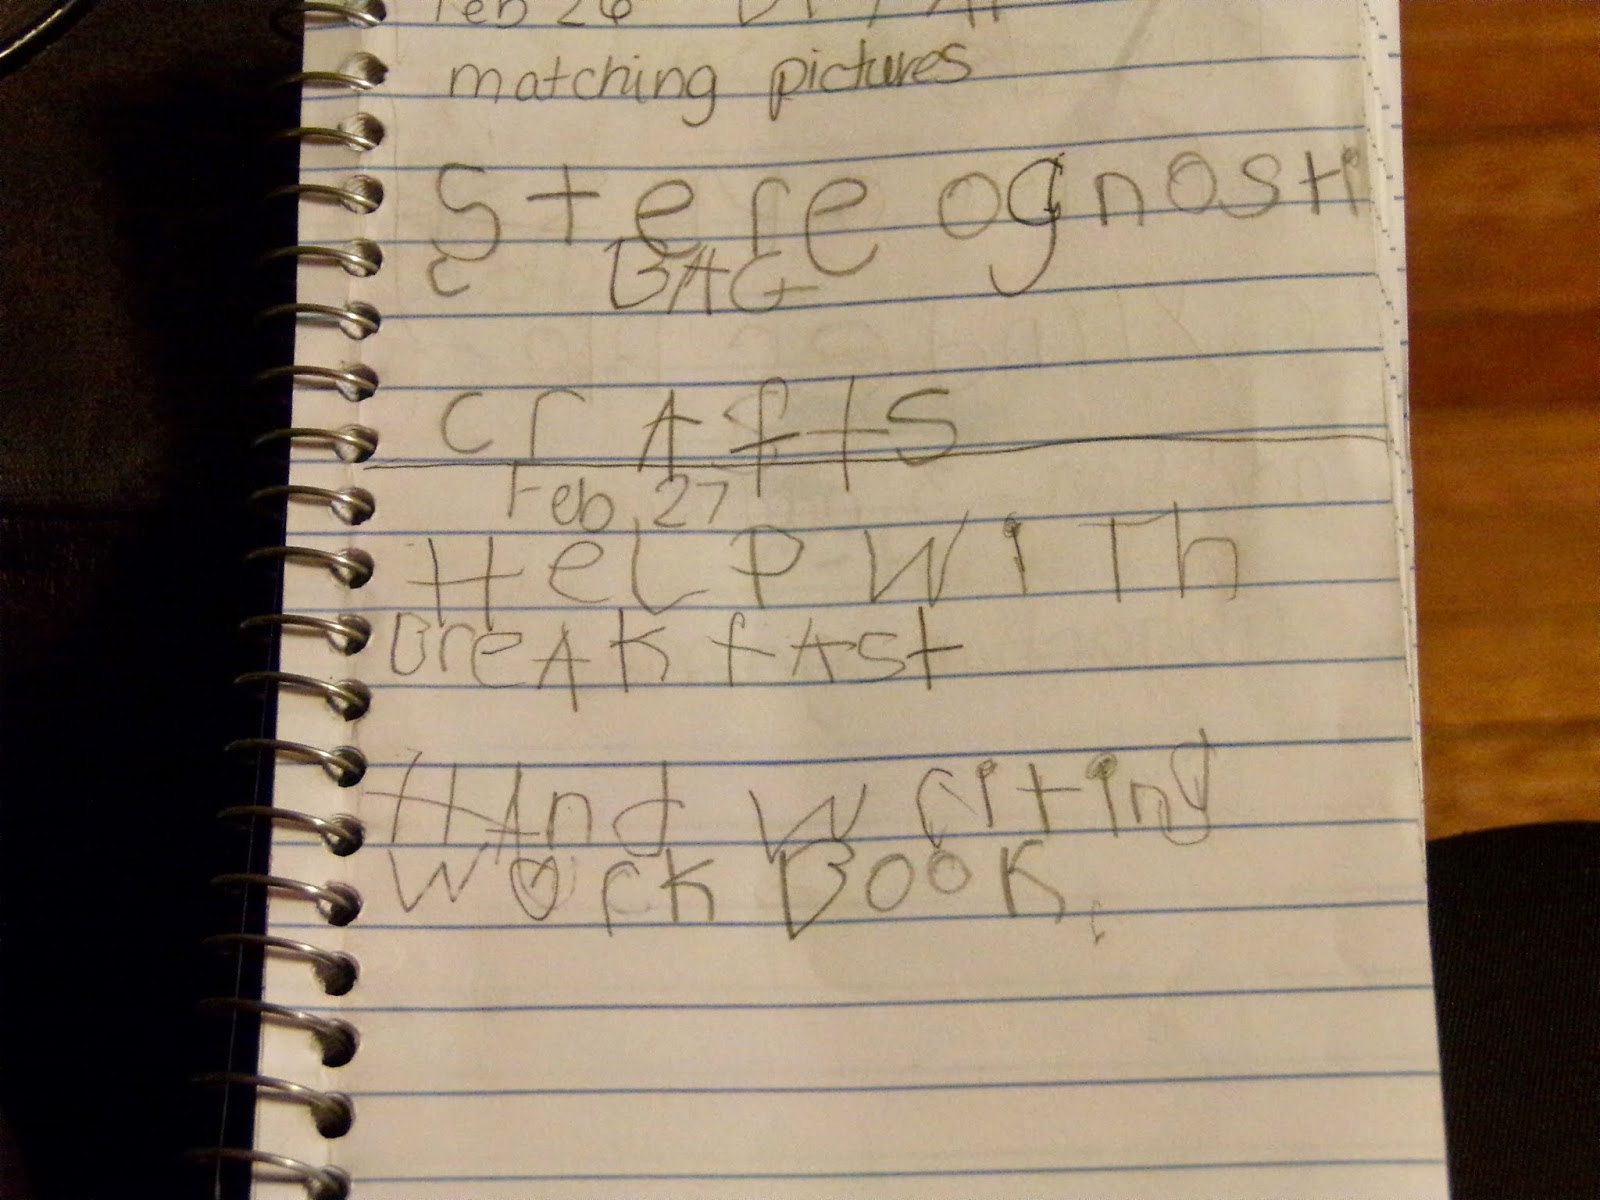 Feb 26
matching pictures
Stereognosti
c BAG
crAfts
Feb 27
HeLP WiTh
BreAKfAst
HAnd writing
WorK BooK.